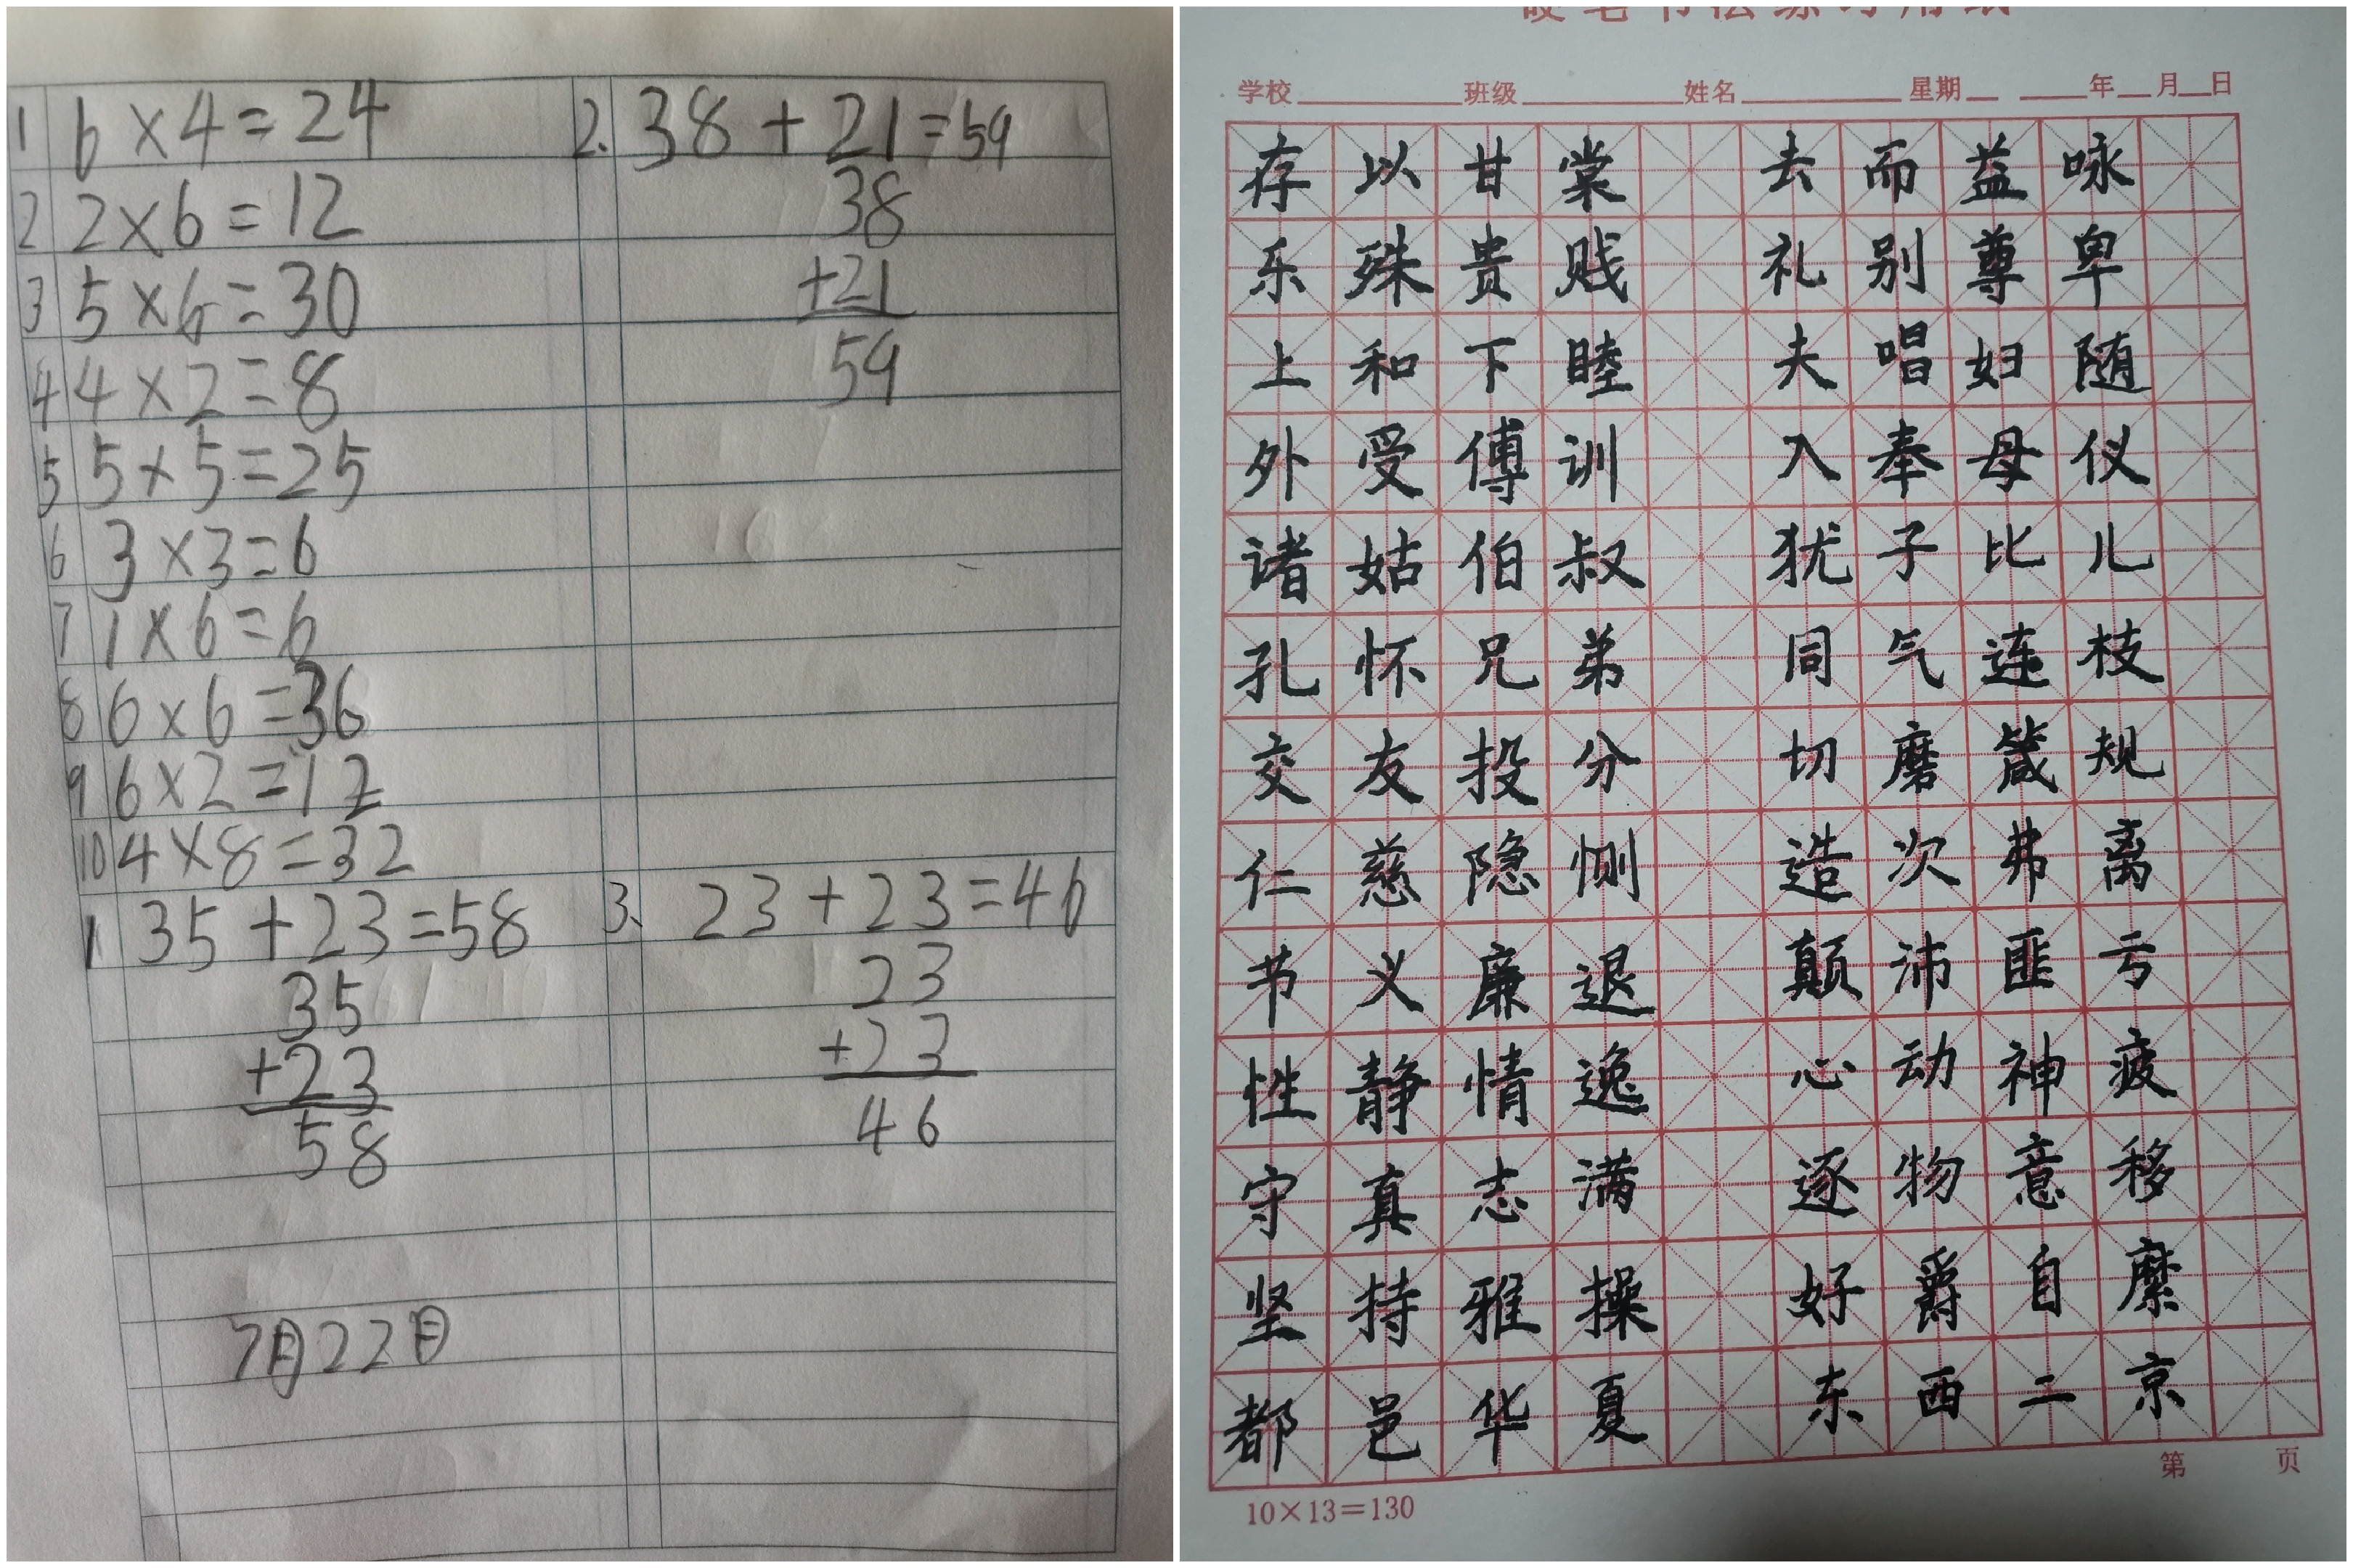 1 6×4=24
2 2×6=12
3 5×6=30
4 4×2=8
5 5×5=25
6 3×3=6
7 1×6=6
8 6×6=36
9 6×2=12
10 4×8=32
1 35+23=58
35
+23
58
7月22日
2. 38+21=59
38
+21
59
3、 23+23=46
23
+23
46
硬笔书法练习用纸
学校 班级 姓名 星期 年 月 日
存以甘棠 去而益咏
乐殊贵贱 礼别尊卑
上和下睦 夫唱妇随
外受傅训 入奉母仪
诸姑伯叔 犹子比儿
孔怀兄弟 同气连枝
交友投分 切磨箴规
仁慈隐恻 造次弗离
节义廉退 颠沛匪亏
性静情逸 心动神疲
守真志满 逐物意移
坚持雅操 好爵自縻
都邑华夏 东西二京
第 页
10×13=130